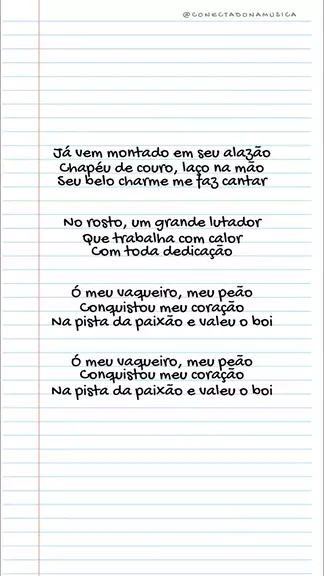 @CONECTADONAMUSICA
Já vem montado em seu alazão
Chapéu de couro, laço na mão
Seu belo charme me faz cantar
No rosto, um grande lutador
Que trabalha com calor
Com toda dedicação
Ó meu vaqueiro, meu peão
Conquistou meu coração
Na pista da paixão e valeu o boi
Ó meu vaqueiro, meu peão
Conquistou meu coração
Na pista da paixão e valeu o boi